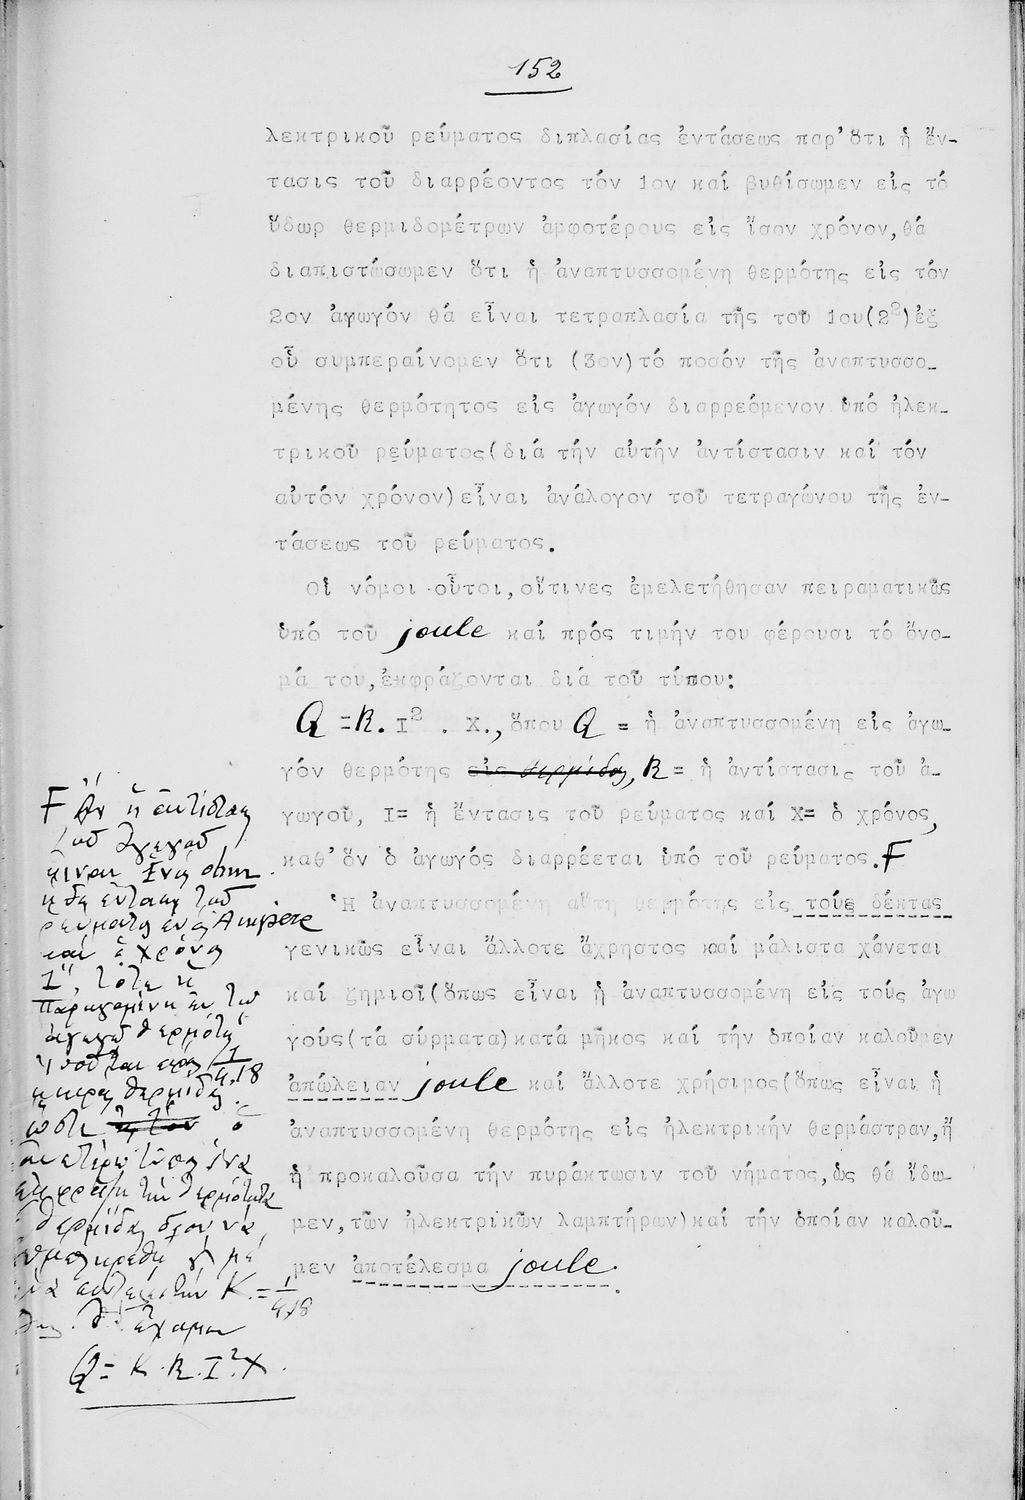 152
λεκτρικοῦ ρεύματος διπλασίας ἐντάσεως παρ' ὅτι ἡ ἔν-
τασις τοῦ διαρρέοντος τόν 1ον καί βυθίσωμεν εἰς τό
ὕδωρ θερμιδομέτρων ἀμφοτέρους εἰς ἴσον χρόνον, θά
διαπιστώσωμεν ὅτι ἡ ἀναπτυσσομένη θερμότης εἰς τόν
2ον ἀγωγόν θά εἶναι τετραπλασία τῆς τοῦ 1ου(2²)ἐξ
οὗ συμπεραίνομεν ὅτι (3ον)τό ποσόν τῆς ἀναπτυσσο-
μένης θερμότητος εἰς ἀγωγόν διαρρεόμενον ὑπό ἠλεκ-
τρικοῦ ρεύματος(διά τήν αὐτήν ἀντίστασιν καί τόν
αὐτόν χρόνον)εἶναι ἀνάλογον τοῦ τετραγώνου τῆς ἐν-
τάσεως τοῦ ρεύματος.
Οἱ νόμοι οὗτοι, οἵτινες ἐμελετήθησαν πειραματικῶς
ὑπό τοῦ joule καί πρός τιμήν του φέρουσι τό ὄνο-
μά του, ἐκφράζονται διά τοῦ τύπου:
Q =R. I² . X., ὅπου Q = ἡ ἀναπτυσσομένη εἰς ἀγω-
γόν θερμότης εἰς θερμίδας, R = ἡ ἀντίστασις τοῦ ἀ-
γωγοῦ, I= ἡ ἔντασις τοῦ ρεύματος καί X= ὁ χρόνος,
καθ' ὅν ὁ ἀγωγός διαρρέεται ὑπό τοῦ ρεύματος. F
Ἡ ἀναπτυσσομένη αὕτη θερμότης εἰς τούς δέκτας
γενικῶς εἶναι ἄλλοτε ἄχρηστος καί μάλιστα χάνεται
καί ζημιοῖ(ὅπως εἶναι ἡ ἀναπτυσσομένη εἰς τούς ἀγω
γούς(τά σύρματα)κατά μῆκος καί τήν ὁποίαν καλοῦμεν
ἀπώλειαν joule καί ἄλλοτε χρήσιμος(ὅπως εἶναι ἡ
ἀναπτυσσομένη θερμότης εἰς ἠλεκτρικήν θερμάστραν, ἤ
ἡ προκαλοῦσα τήν πυράκτωσιν τοῦ νήματος, ὡς θά ἴδω-
μεν, τῶν ἠλεκτρικῶν λαμπτήρων)καί τήν ὁποίαν καλοῦ-
μεν ἀποτέλεσμα joule.
F Ἄν ἡ ἀντίστασις
τοῦ ἀγωγοῦ
εἶναι ἕνα ohm
ἡ δέ ἔντασις τοῦ
ρεύματος ἕνα Ampère
καί ὁ χρόνος
1'', τότε ἡ
παραγομένη ἐν τῷ
ἀγωγῷ θερμότης
ἰσοῦται πρός 1/4,18
μικράς θερμίδας.
ὥστε ὁ
τύπος ἵνα
ἐκφράζῃ τήν θερμότητα
θερμίδας δέον νά
K = 1/4,18
ἔχωμεν
Q = K . R . I² . X.